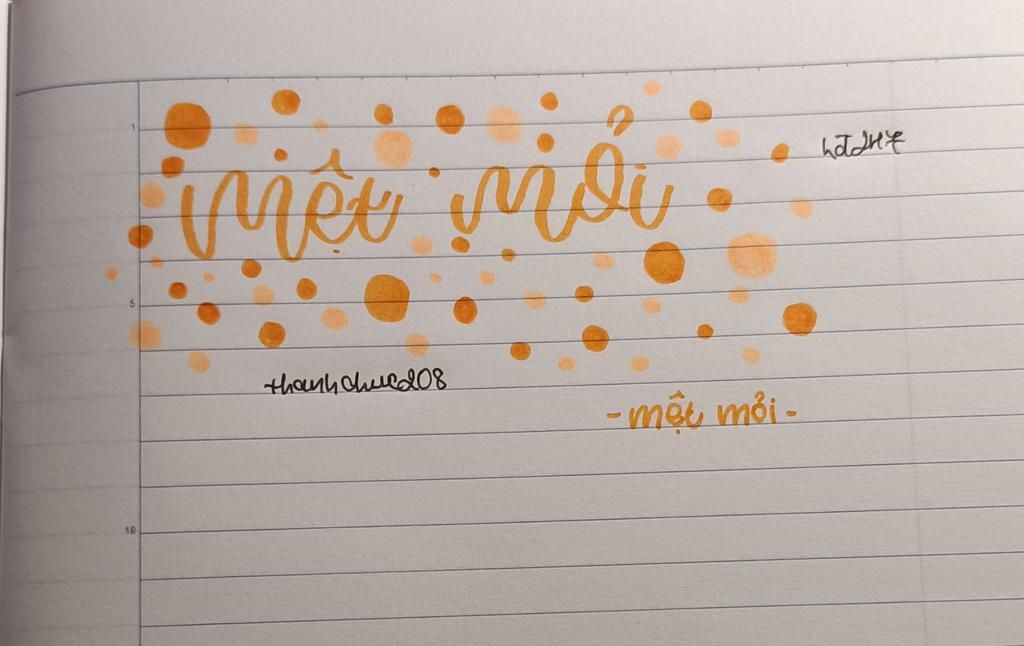 1
mệt mỏi
5
thanhchucd08
-mệt mỏi-
10